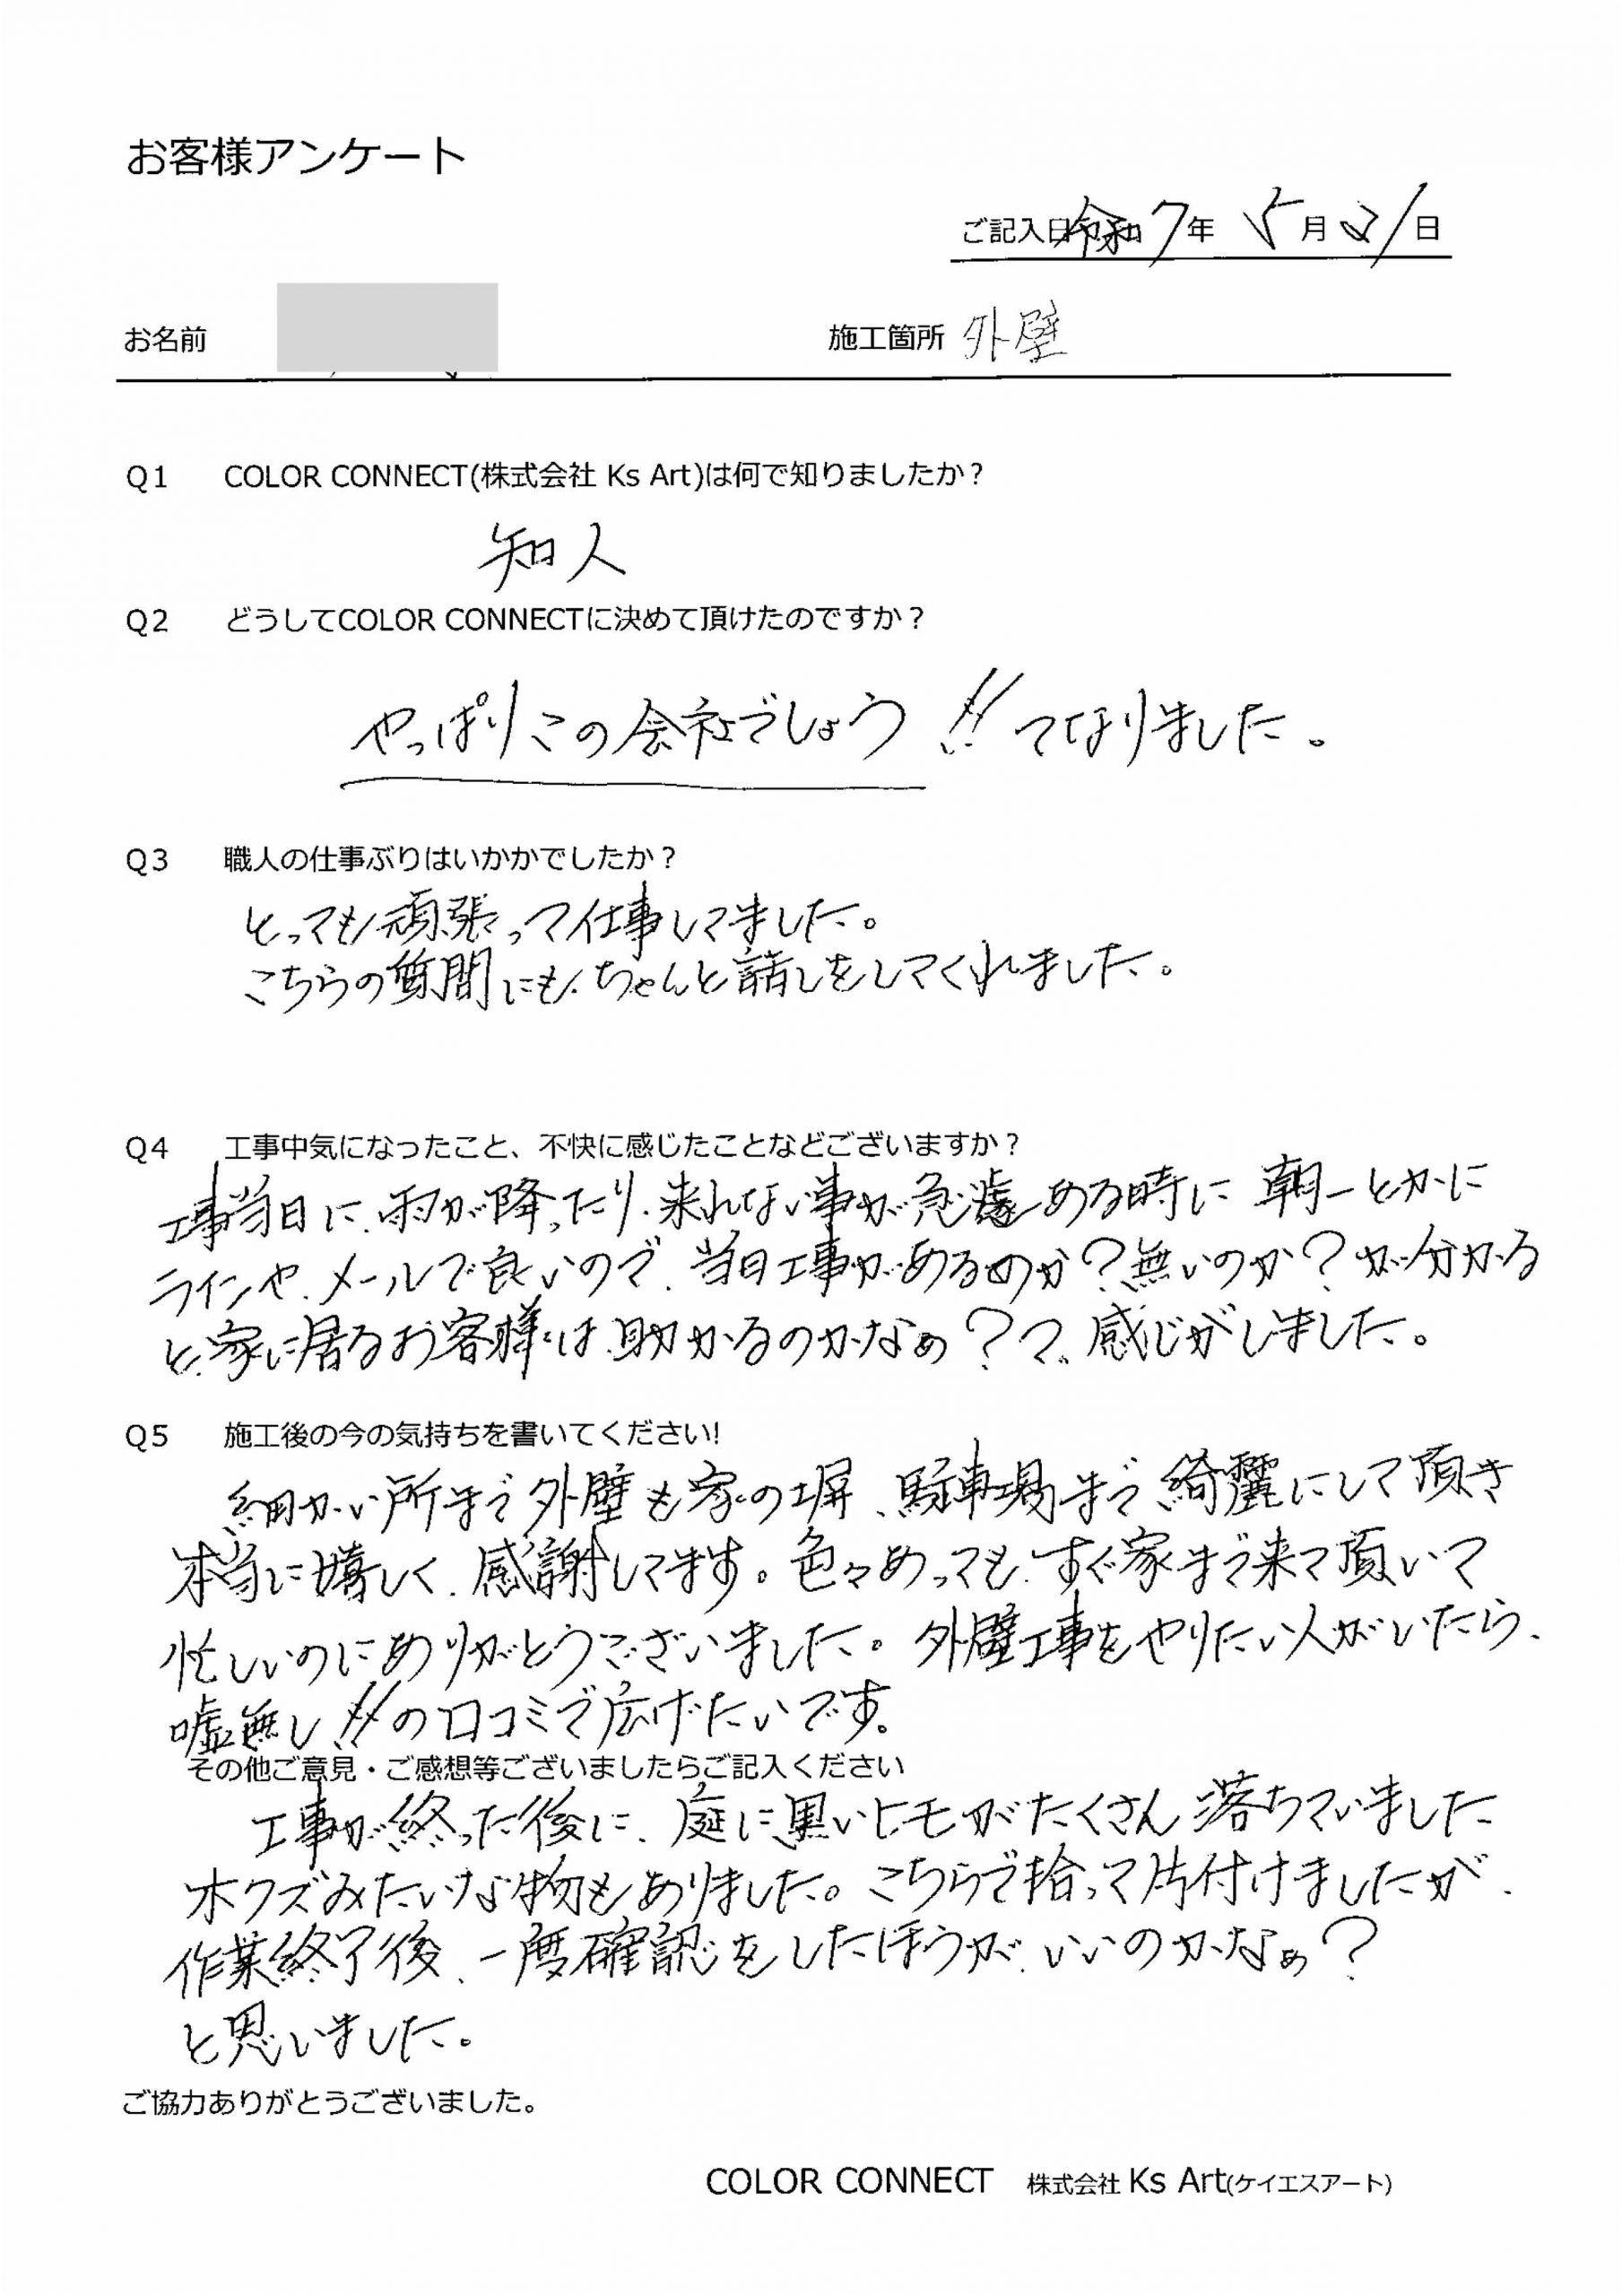 お客様アンケート
ご記入日 令和7年 5月21日
お名前
施工箇所 外壁
Q1 COLOR CONNECT(株式会社 Ks Art)は何で知りましたか？
知人
Q2 どうしてCOLOR CONNECTに決めて頂けたのですか？
やっぱりこの会社でしょう!!てなりました。
Q3 職人の仕事ぶりはいかかでしたか？
とっても頑張って仕事してました。
こちらの質問にも、ちゃんと話しをしてくれました。
Q4 工事中気になったこと、不快に感じたことなどございますか？
工事当日に、雨が降ったり、来れない事が急遽ある時に 朝一とかに
ラインや、メールで良いので、当日工事があるのか？無いのか？が分かる
と、家に居るお客様は、助かるのかなぁ？って、感じがしました。
Q5 施工後の今の気持ちを書いてください!
細かい所まで外壁も家の塀、駐車場まで綺麗にして頂き
本当に嬉しく、感謝してます。色々あっても、すぐ家まで来て頂いて
忙しいのにありがとうございました。外壁工事をやりたい人がいたら、
嘘無し!!の口コミで広げたいです。
その他ご意見・ご感想等ございましたらご記入ください
工事が終った後に、庭に黒いヒモがたくさん落ちていました
木クズみたいな物もありました。こちらで拾って片付けましたが、
作業終了後、一度確認をしたほうが、いいのかなぁ？
と思いました。
ご協力ありがとうございました。
COLOR CONNECT 株式会社 Ks Art(ケイエスアート)